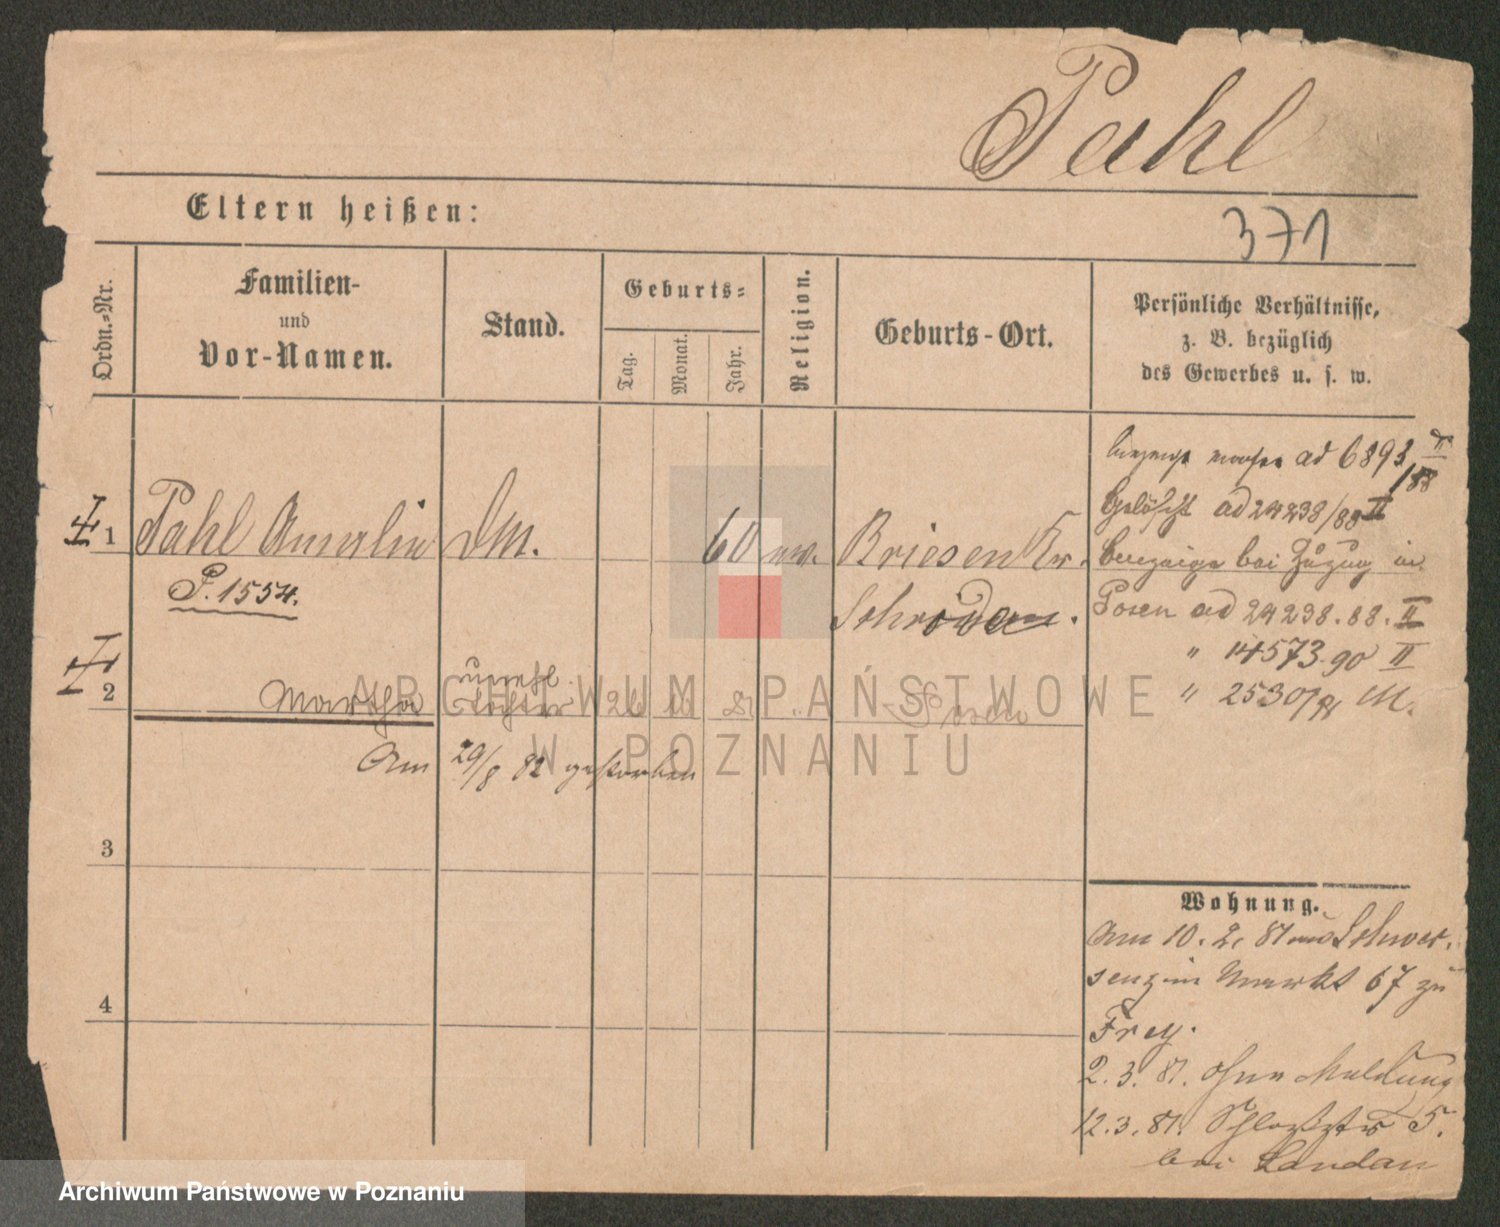 Pahl
Eltern heißen:
371
Ordn.-Nr.
Familien-
und
Vor-Namen.
Stand.
Geburts-
Tag.
Monat.
Jahr.
Religion.
Geburts-Ort.
Persönliche Verhältnisse,
z. B. bezüglich
des Gewerbes u. s. w.
1 Pahl Amalie DM. 60 Briesen Kr.
Schroda.
P. 1554.
2 Martha unehl.
Tochter Posen
Am 29/8 82 gestorben
3
4
ad 6893 II/88
Gelöscht ad 24238/88 II
bei Zuzug in
Posen ad 24238.88. II
" 14573.90 II
" 2530/91 M.
Wohnung.
Am 10. 2. 81 aus Schwer-
senz im Markt 67 zu
Frey.
2. 3. 81. ohne Meldung
12. 3. 81. Schloßstr 5.
bei Landau
ARCHIWUM PAŃSTWOWE
W POZNANIU
Archiwum Państwowe w Poznaniu